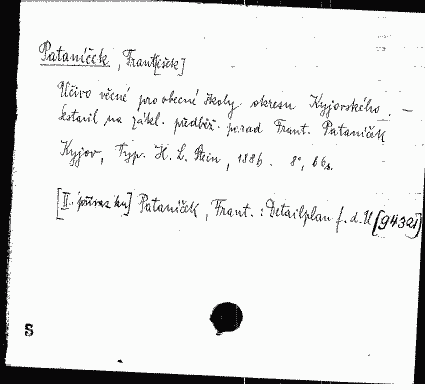 Pataníček, Frant[išek]
Učivo věcné pro obecné školy okresu Kyjovského. —
Sestavil na zákl. předběž. porad Frant. Pataníček
Kyjov, Typ. K. L. Stein, 1886. 8°, 66s.
[II. přívazku] Pataníček, Frant.: Detailplan f. d. U [94321]
S